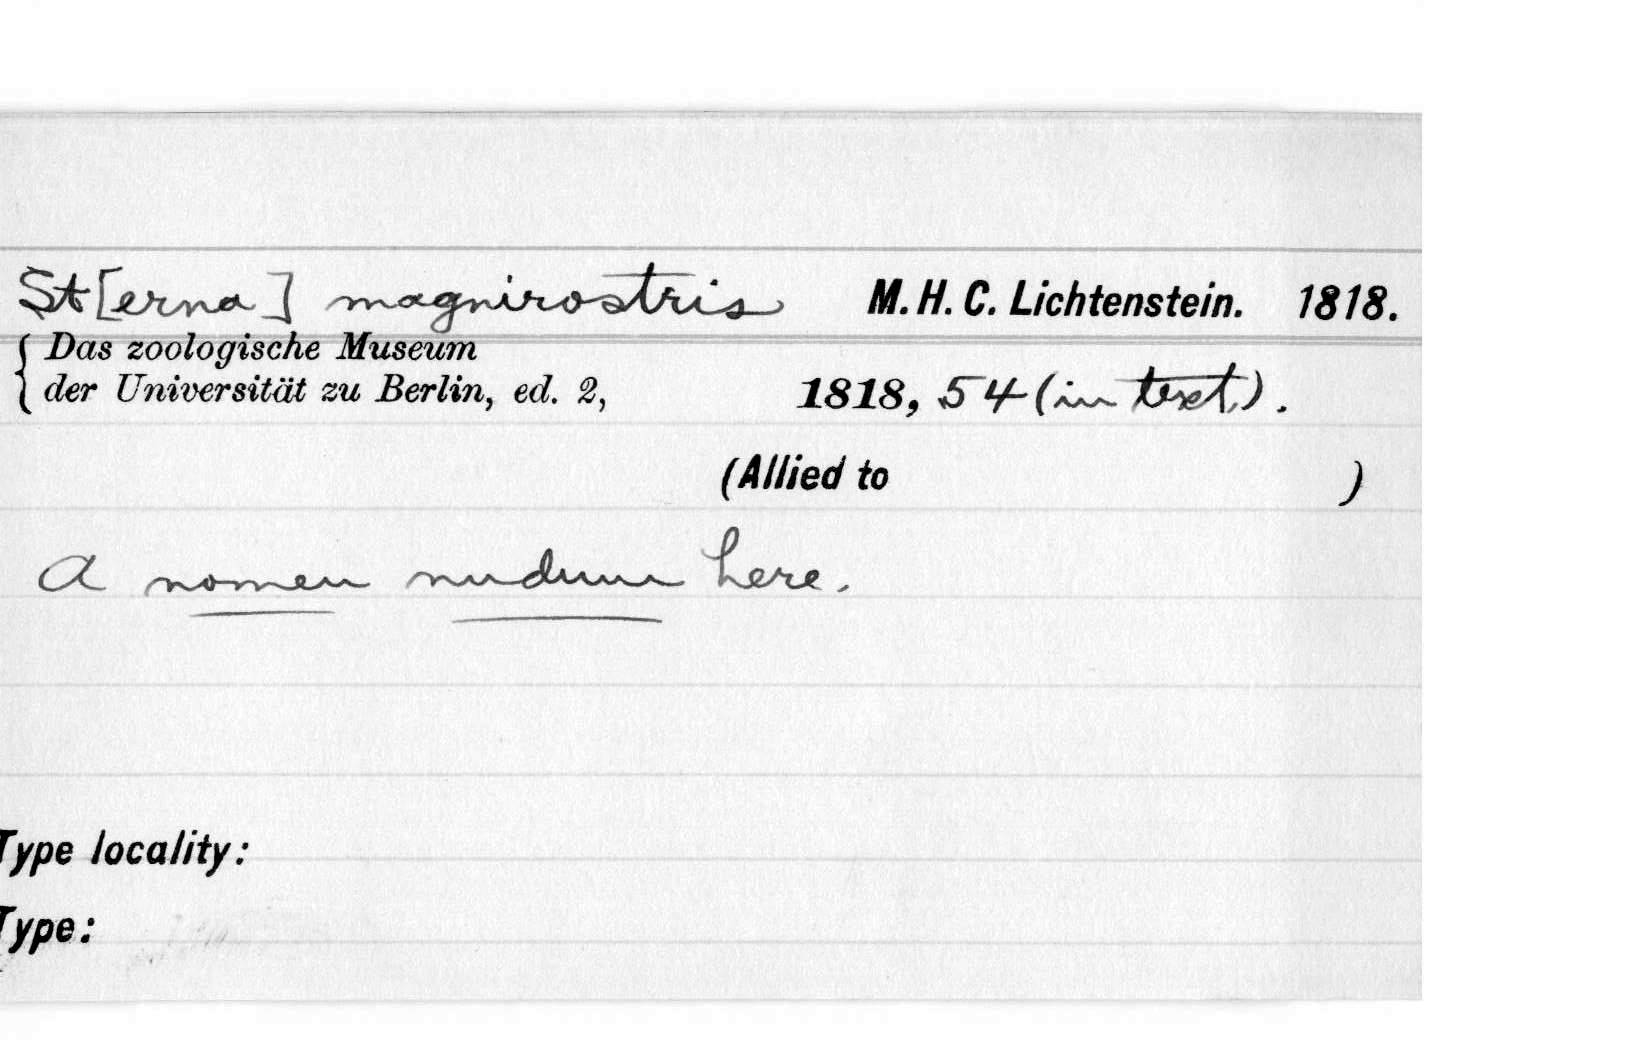 St[erna] magnirostris M. H. C. Lichtenstein. 1818.
{ Das zoologische Museum
der Universität zu Berlin, ed. 2, 1818, 54 (in text).
(Allied to )
A nomen nudum here.
Type locality:
Type: